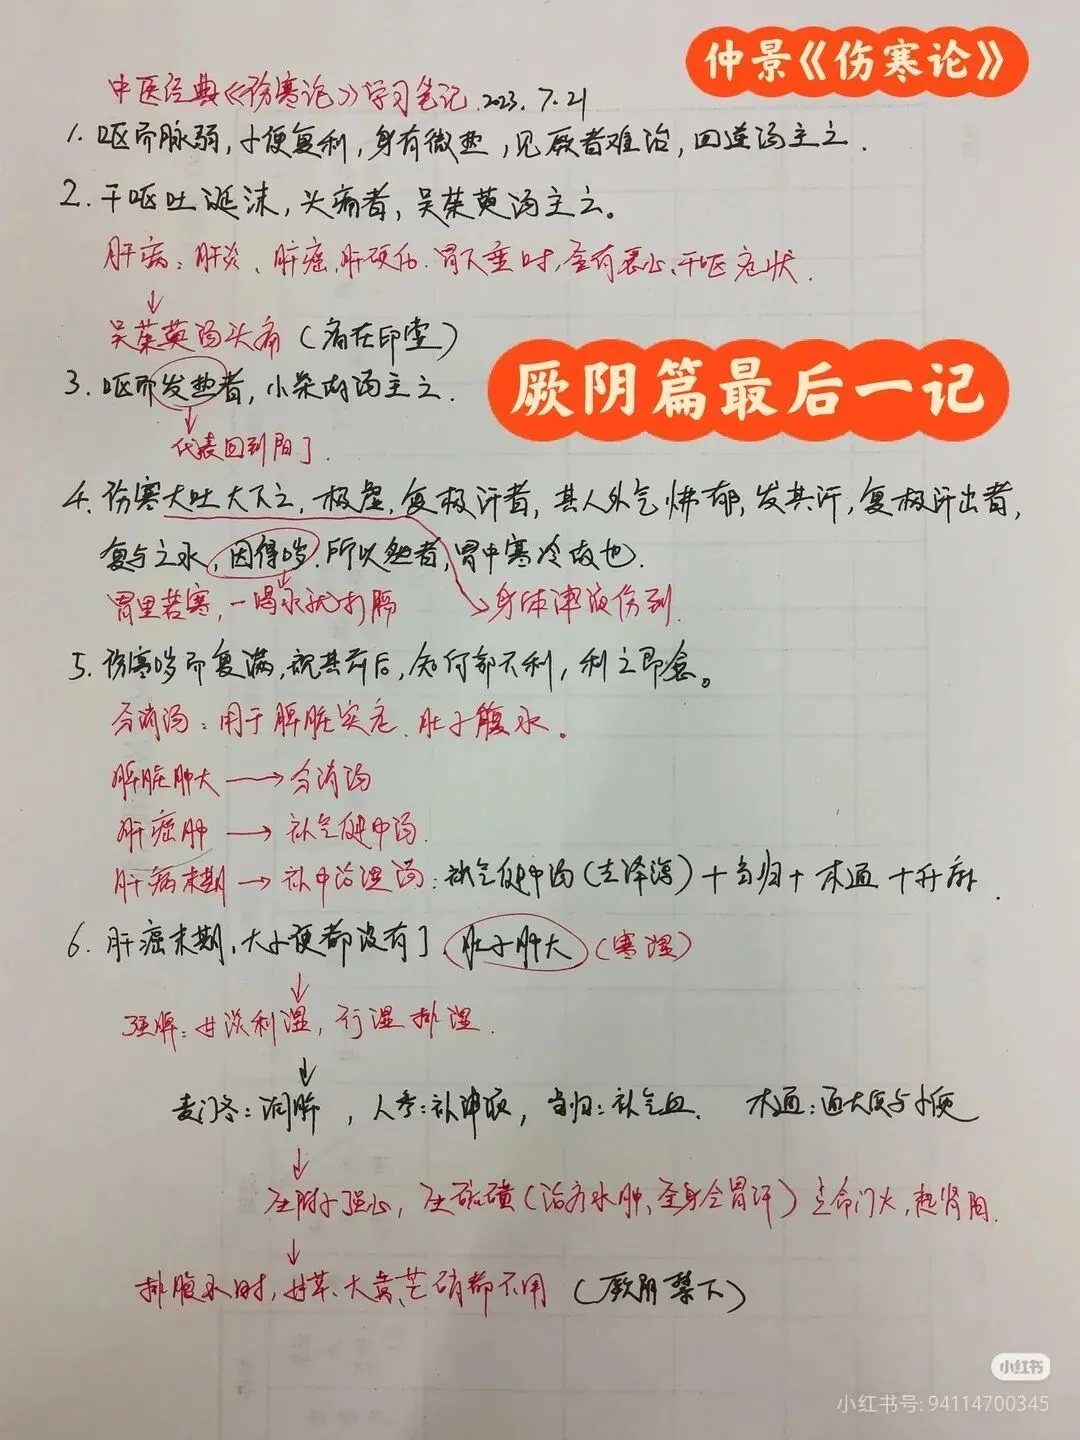 仲景《伤寒论》
中医经典《伤寒论》学习笔记.2023.7.21
1.呕而脉弱,小便复利,身有微热,见厥者难治,四逆汤主之.
2.干呕吐涎沫,头痛者,吴茱萸汤主之。
肝病:肝炎、肝癌、肝硬化.胃下垂时,会有恶心、干呕症状.
↓
吴茱萸汤头痛(痛在印堂)
厥阴篇最后一记
3.呕而发热者,小柴胡汤主之.
↓
代表回到阳了.
4.伤寒大吐大下之,极虚,复极汗者,其人外气怫郁,发其汗,复极汗出者,
复与之水,因得哕.所以然者,胃中寒冷故也.
胃里若寒,一喝水就打膈
身体津液伤到.
5.伤寒哕而复满,视其前后,知何部不利,利之即愈。
分消汤:用于脾脏实症.肚子腹水。
脾脏肿大→分消汤
肝癌肿→补气健中汤.
肝病末期→补中治湿汤:补气健中汤(去泽泻)+当归+木通+升麻.
6.肝癌末期,大小便都没有了.肚子肿大(寒湿)
↓
强脾:甘淡利湿,行湿排湿.
↓
麦门冬:润肺,人参:补津液,当归:补气血.木通:通大便与小便
↓
生附子强心,生硫磺(治疗水肿,全身会冒汗)壮命门火,起肾阳.
↓
排腹水时,甘草、大黄、芒硝都不用(厥阴禁下)
小红书
小红书号:94114700345